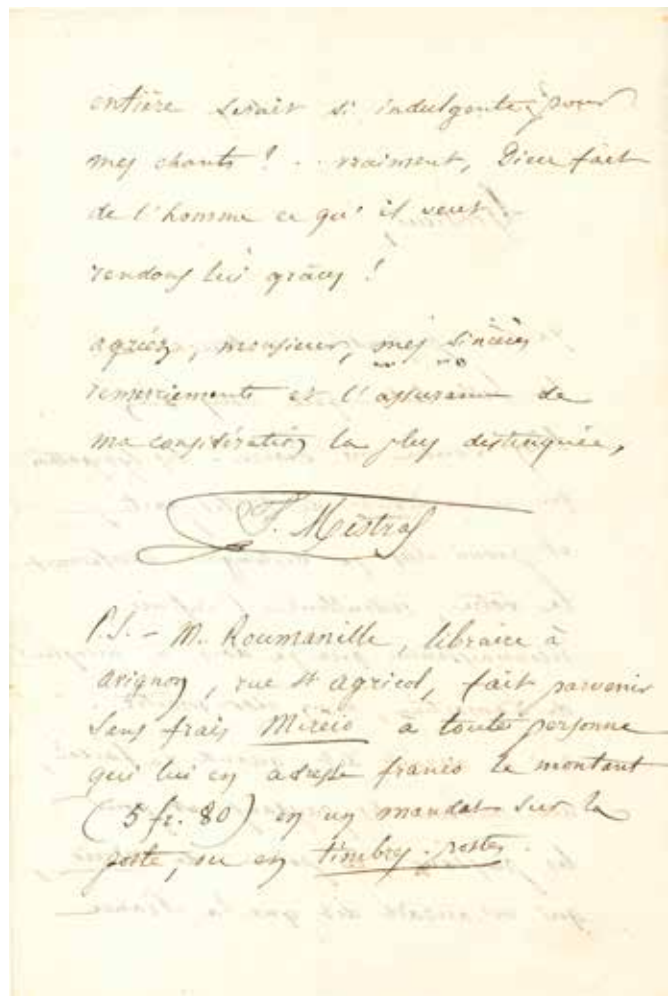 entière serait si indulgente pour
mes chants ! . . vraiment, Dieu fait
de l'homme ce qu'il veut.
rendons lui grâces !
agréez, monsieur, mes sincères
remerciements et l'assurance de
ma considération la plus distinguée,
F. Mistral
P.S. - M. Roumanille, libraire à
avignon, rue St agricol, fait parvenir
sans frais Mirèio à toute personne
qui lui en adresse franco le montant
(5 fr. 80) en un mandat sur la
poste, ou en timbres-postes.